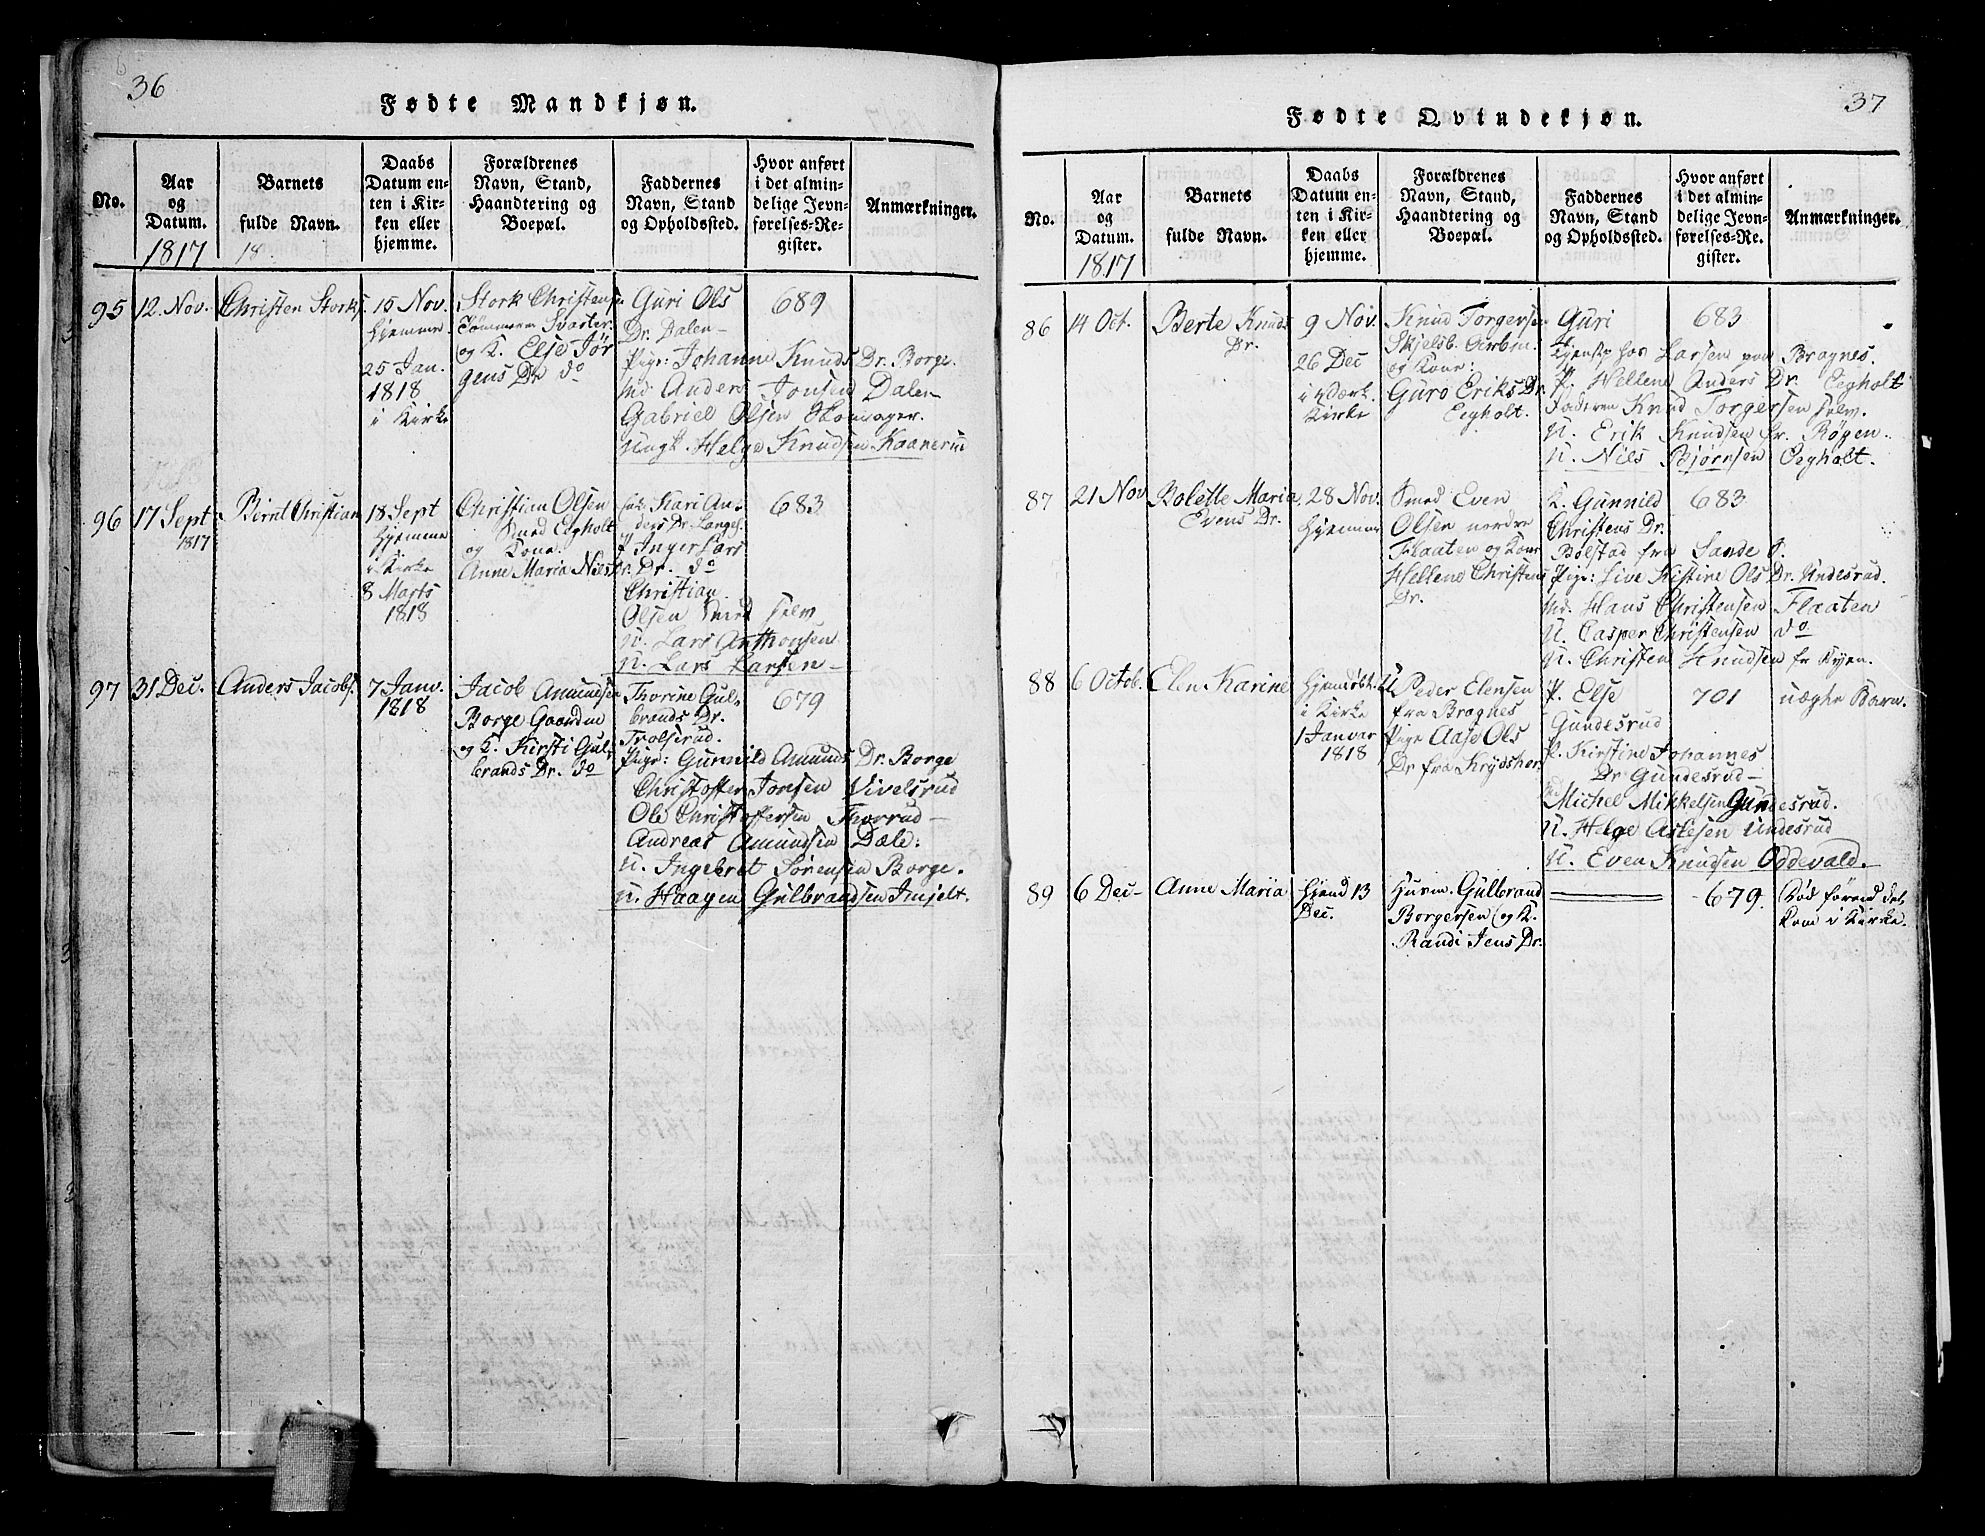 36
Fødte Mandkjøn.
No.
Aar
og
Datum.
1817
Barnets
fulde Navn.
18
Daabs
Datum en-
ten i Kir-
ken eller
hjemme.
Forældrenes
Navn, Stand,
Haandtering og
Boepæl.
Faddernes
Navn, Stand
og Opholdssted.
Hvor anført
i det almin-
delige Jevn-
førelses-Re-
gister.
Anmærkninger.
95
12 Nov.
Christen Storks.
15 Nov.
hjemme
25 Jan.
1818
i Kirke
Stork Christensen
Tømmerm Svarter
og K. Else Jør
gens Dr. do
Guri Ols
Dr. Dalen-
Pige: Johanne Knuds Dr. Borge.
Md. Anders Jonsen Dalen
Gabriel Olsen
Ungk. Helge Knudsen Kaanerud
689
96
17 Sept
1817
Bernt Christian
18 Sept
hjemme
i Kirke
8 Marts
1818
Christian Olsen
Smed Eegholt
og Kone
Anne Maria Niels Dr.
Kari An-
ders Dr. Langes.
P. Inger Lars
Dr. do
Christian
Olsen Smed selv
U. Lars Anthonsen
U. Lars Larsen
683
97
31 Dec.
Anders Jacobs.
7 Janv.
1818
Jacob Amundsen
Borge Gaardm
og K. Kirsti Gul-
brands Dr. do
Thorine Gul-
brands Dr.
Trolserud.
Pige: Gunnild Amunds Dr. Borge
Christoffer Jonsen Vivelsrud
Ole Christoffersen Thorrud
Andreas Amundsen Dæle:
U. Ingebret Sørensen Borge.
U. Haagen Gulbrandsen
679
37
Fødte Qvindekjøn.
No.
Aar
og
Datum.
1817
Barnets
fulde Navn.
Daabs
Datum en-
ten i Kir-
ken eller
hjemme.
Forældrenes
Navn, Stand,
Haandtering og
Boepæl.
Faddernes
Navn, Stand
og Opholdssted.
Hvor anført
i det almin-
delige Jevn-
førelses-Re-
gister.
Anmærkninger.
86
14 Oct.
Berte Knuds
Dr.
9 Nov.
26 Dec
i Værk.
Kirke
Knud Torgersen
Skjelsb. Arben.
og Kone:
Guro Eriks Dr.
Eegholt.
Guri
hos Larsen paa Bragnes.
P. Hellene Anders Dr. Eegholt
Faderen Knud Torgersen selv.
U. Erik Knudsen fr. Røgen.
U. Niels Bjørnsen Eegholt.
683
87
21 Nov
Bolette Maria
Evens Dr.
28 Nov.
hjemme
Smed Even
Olsen nordre
Flaaten og Kone
Hellene Christens
Dr.
K. Gunnild
Christens Dr.
Bolstad fra Sande
Pige: Live Kistine Ols Dr. Undesrud.
Md. Hans Christensen Flaaten
U. Casper Christensen do
U. Christen Knudsen fr
683
88
6 Octob.
Elen Karine
hjemdøbt.
i Kirke
1 Januar
1818
U. Peder Elensen
fra Bragnes
Pige Aase Ols
Dr fra Krydsher.
P. Else
Gundesrud
P. Kirstine Johannes
Dr Gundesrud
Md Michel Mikkelsen Gundesrud.
U. Helge Aslesen Undesrud
U. Even Knudsen Oddevald.
701
uægte Barn.
89
6 Dec-
Anne Maria
hjemd 13
Dec.
Husm. Gulbrand
Borgersen og K.
Randi Jens Dr.
679.
Død førend det
kom i Kirke.